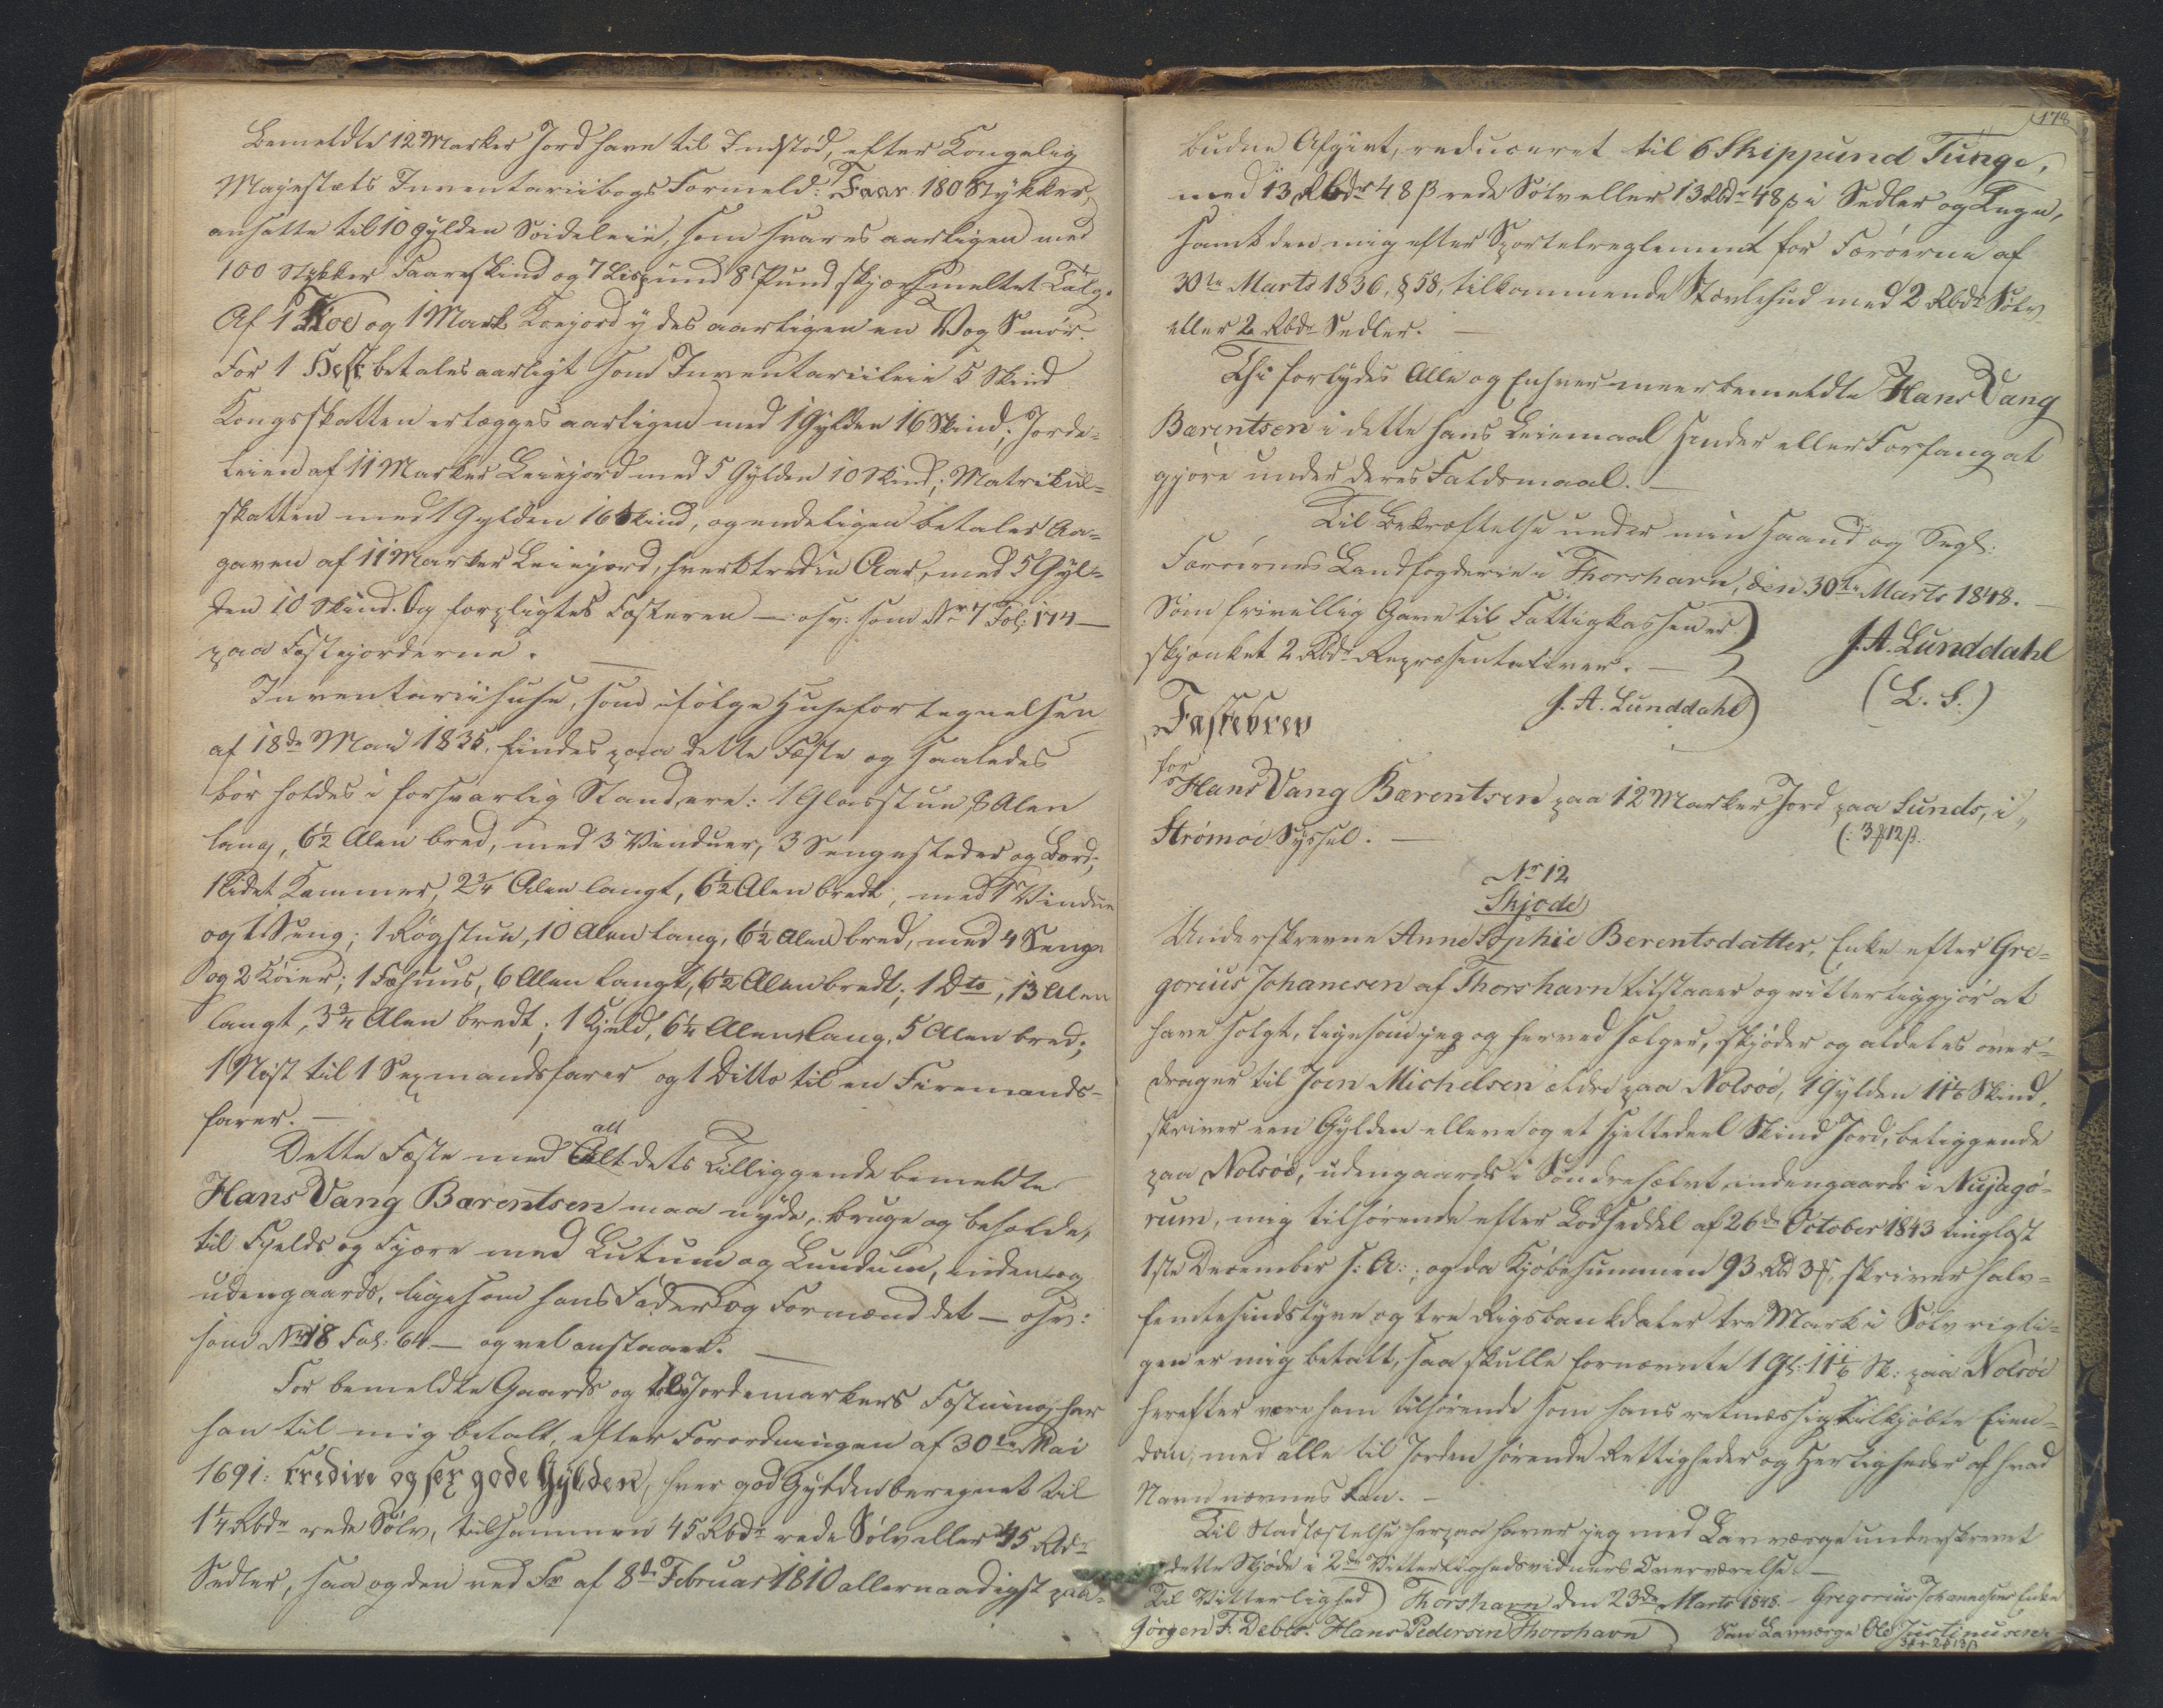 Bemeldte 12 Marker Jord have til Indstød, efter Kongelig
Mayestæts Inventariibogs Formeld: Faar 180 Stykker,
ansatte til 10 Gylden Soideleie, som svares aarligen med
100 Stykker Faareskind og 7 Lispund 8 Pund skjørsmeltet Talg.
Af 1 Koe og 1 Mark Koejord ydes aarligen en Vog Smør.
For 1 Hest betales aarligt som Inventariileie 5 Skind
Kongsskatten erlægges aarligen med 1 Gylden 16 Skind; Jorde-
leien af 11 Marker Leiejord med 5 Gylden 10 Skind; Matrikul-
skatten med 1 Gylden 16 Skind, og endeligen betales Aa-
gaven af 11 Marker Leiejord, hvert tredie Aar, med 5 Gyl-
den 10 Skind. Og forpligtes Fæsteren — osv: som Nr 7 Fol: 174 —
paa Festejorderne. —
Inventariihuse, som ifølge Husefortegnelsen
af 18de Mai 1835, findes paa dette Fæste og saaledes
bør holdes i forsvarlig Stand, ere: 1 Glasstue, 8 Alen
lang, 6½ Alen bred, med 3 Vinduer, 3 Sengesteder og Bord;
1 lidet Kammer, 2¾ Alen langt, 6½ Alen bredt, med 1 Vindue
og 1 Seng; 1 Røgstue, 10 Alen lang, 6½ Alen bred, med 4 Senge
og 2 Køier; 1 Fæhuus, 6 Alen langt, 6½ Alen bredt; 1 Dto, 13 Alen
langt, 3¾ Alen bredt; 1 Hjeld, 6¼ Alen lang, 5 Alen bred;
1 Nøst til 1 Sexmandsfarer og 1 Ditto til en Firemands-
farer. —
all
Dette Fæste med Alt dets Tilliggende bemeldte
Hans Vang Bærentsen maa nyde, bruge og beholde,
til Fjelds og Fjære med Lutum og Lundum, inden- og
udengaards, ligesom hans Fader og Formænd det — osv:
som Nr 18 Fol: 64 — og vel anstaaer. —
For bemeldte Gaards og 12 Jordemarkers Fæstning har
han til mig betalt, efter Forordningen af 30te Mai
1691: tredive og sex gode Gylden, hver god Gylden beregnet til
1¼ Rbdr rede Sølv, tilsammen 45 Rbdr rede Sølv eller 45 Rbdr
Sedler, saa og den ved Fr af 8de Februar 1810 allernaadigst paa-
178
budne Afgivt, reduceret til 6 Skippund Tunge,
med 13 Rbdr 48 ß rede Sølv eller 13 Rbdr 48 ß i Sedler og Tegn,
samt den mig efter Sportelreglement for Færøerne af
30te Marts 1836, § 58, tilkommende Støvlehud med 2 Rbdr Sølv
eller 2 Rbdr Sedler. —
Thi forbydes Alle og Enhver meerbemeldte Hans Vang
Bærentsen i dette hans Leiemaal Hinder eller Forfang at
gjøre under deres Faldsmaal. —
Til Bekræftelse under min Haand og Segl:
Færøernes Landfogderie i Thorshavn, den 30te Marts 1848. —
Som frivillig Gave til Fattigkassen er
skjænket 2 Rbdr Repræsentativer. —
J. A. Lunddahl
J. A. Lunddahl
(L. S.)
Fæstebrev
for
Hans Vang Bærentsen paa 12 Marker Jord paa Sunds, i
Strømøe Syssel. —
(: 3 ₰ 12 ß.
Nr 12
Skjøde
Underskrevne Anne Sophie Berentsdatter, Enke efter Gre-
gorius Johanesen af Thorshavn tilstaaer og vitterliggjør at
have solgt, ligesom jeg og herved sælger, skjøder og aldeles over-
drager til Joen Michelsen ældre paa Nolsøe, 1 Gylden 11⅙ Skind,
skriver een Gylden elleve og et sjettedeel Skind Jord, beliggende
paa Nolsøe, udengaards i Søndrehælvt, indengaards i Nujagø-
rum, mig tilhørende efter Lodseddel af 26de October 1843 tinglæst
1ste December s: A:, og da Kjøbesummen 93 Rbd 3 ₰, skriver halv-
femtesindstyve og tre Rigsbankdaler tre Mark i Sølv rigti-
gen er mig betalt, saa skulle fornævnte 1 Gl: 11⅙ Sk: paa Nolsøe
herefter være ham tilhørende som hans retmæssig tilkjøbte Eien-
dom, med alle til Jorden hørende Rettigheder og Herligheder af hvad
Navn nævnes kan. —
Til Stadfæstelse herpaa haver jeg med Laugværge underskrevet
dette Skjøde i 2de Vitterlighedsvidners Overværelse. —
Til Vitterlighed
Thorshavn den 23de Marts 1848. — Gregorius Johannesens Enke
Jørgen F. Debes. Hans Pedersen Thorshavn
Som Laugværge Ole Justinusen